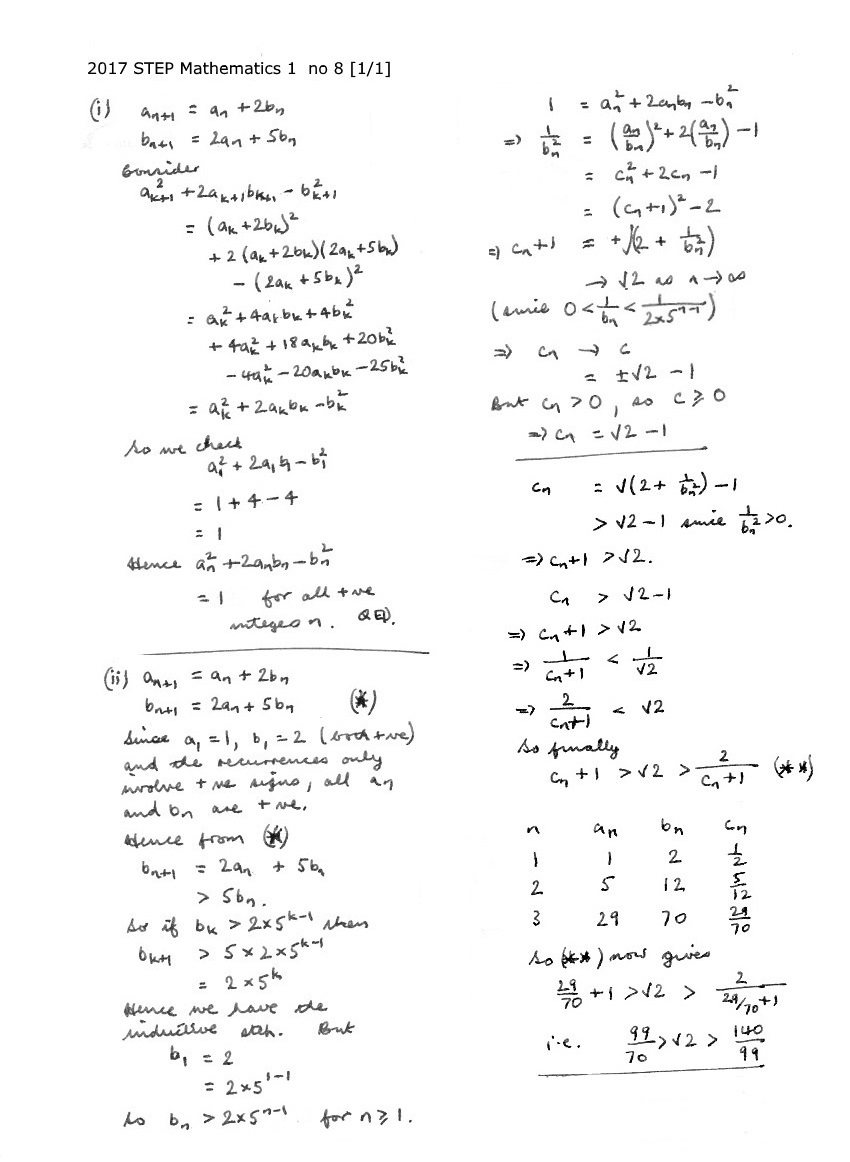 2017 STEP Mathematics 1 no 8 [1/1]
(i) aₙ₊₁ = aₙ + 2bₙ
bₙ₊₁ = 2aₙ + 5bₙ
Consider
aₖ₊₁² + 2aₖ₊₁bₖ₊₁ - bₖ₊₁²
= (aₖ + 2bₖ)²
+ 2(aₖ + 2bₖ)(2aₖ + 5bₖ)
- (2aₖ + 5bₖ)²
= aₖ² + 4aₖbₖ + 4bₖ²
+ 4aₖ² + 18aₖbₖ + 20bₖ²
- 4aₖ² - 20aₖbₖ - 25bₖ²
= aₖ² + 2aₖbₖ - bₖ²
So we check
a₁² + 2a₁b₁ - b₁²
= 1 + 4 - 4
= 1
Hence aₙ² + 2aₙbₙ - bₙ²
= 1 for all +ve
integers n. QED.
(ii) aₙ₊₁ = aₙ + 2bₙ
bₙ₊₁ = 2aₙ + 5bₙ (*)
Since a₁ = 1, b₁ = 2 (both +ve)
and the recurrences only
involve +ve signs, all aₙ
and bₙ are +ve.
Hence from (*)
bₙ₊₁ = 2aₙ + 5bₙ
> 5bₙ.
So if bₖ > 2×5ᵏ⁻¹ then
bₖ₊₁ > 5×2×5ᵏ⁻¹
= 2×5ᵏ
Hence we have the
inductive step. But
b₁ = 2
= 2×5¹⁻¹
So bₙ > 2×5ⁿ⁻¹ for n ≥ 1.
1 = aₙ² + 2aₙbₙ - bₙ²
⇒ 1/bₙ² = (aₙ/bₙ)² + 2(aₙ/bₙ) - 1
= cₙ² + 2cₙ - 1
= (cₙ+1)² - 2
⇒ cₙ+1 = +√(2 + 1/bₙ²)
→ √2 as n → ∞
(since 0 < 1/bₙ < 1/(2×5ⁿ⁻¹))
⇒ cₙ → c
= ±√2 - 1
But cₙ > 0, so c ≥ 0
⇒ cₙ = √2 - 1
cₙ = √(2 + 1/bₙ²) - 1
> √2 - 1 since 1/bₙ² > 0.
⇒ cₙ+1 > √2.
cₙ > √2 - 1
⇒ cₙ+1 > √2
⇒ 1/(cₙ+1) < 1/√2
⇒ 2/(cₙ+1) < √2
So finally
cₙ + 1 > √2 > 2/(cₙ+1) (**)
n aₙ bₙ cₙ
1 1 2 1/2
2 5 12 5/12
3 29 70 29/70
So (**) now gives
29/70 + 1 > √2 > 2/(29/70+1)
i.e. 99/70 > √2 > 140/99